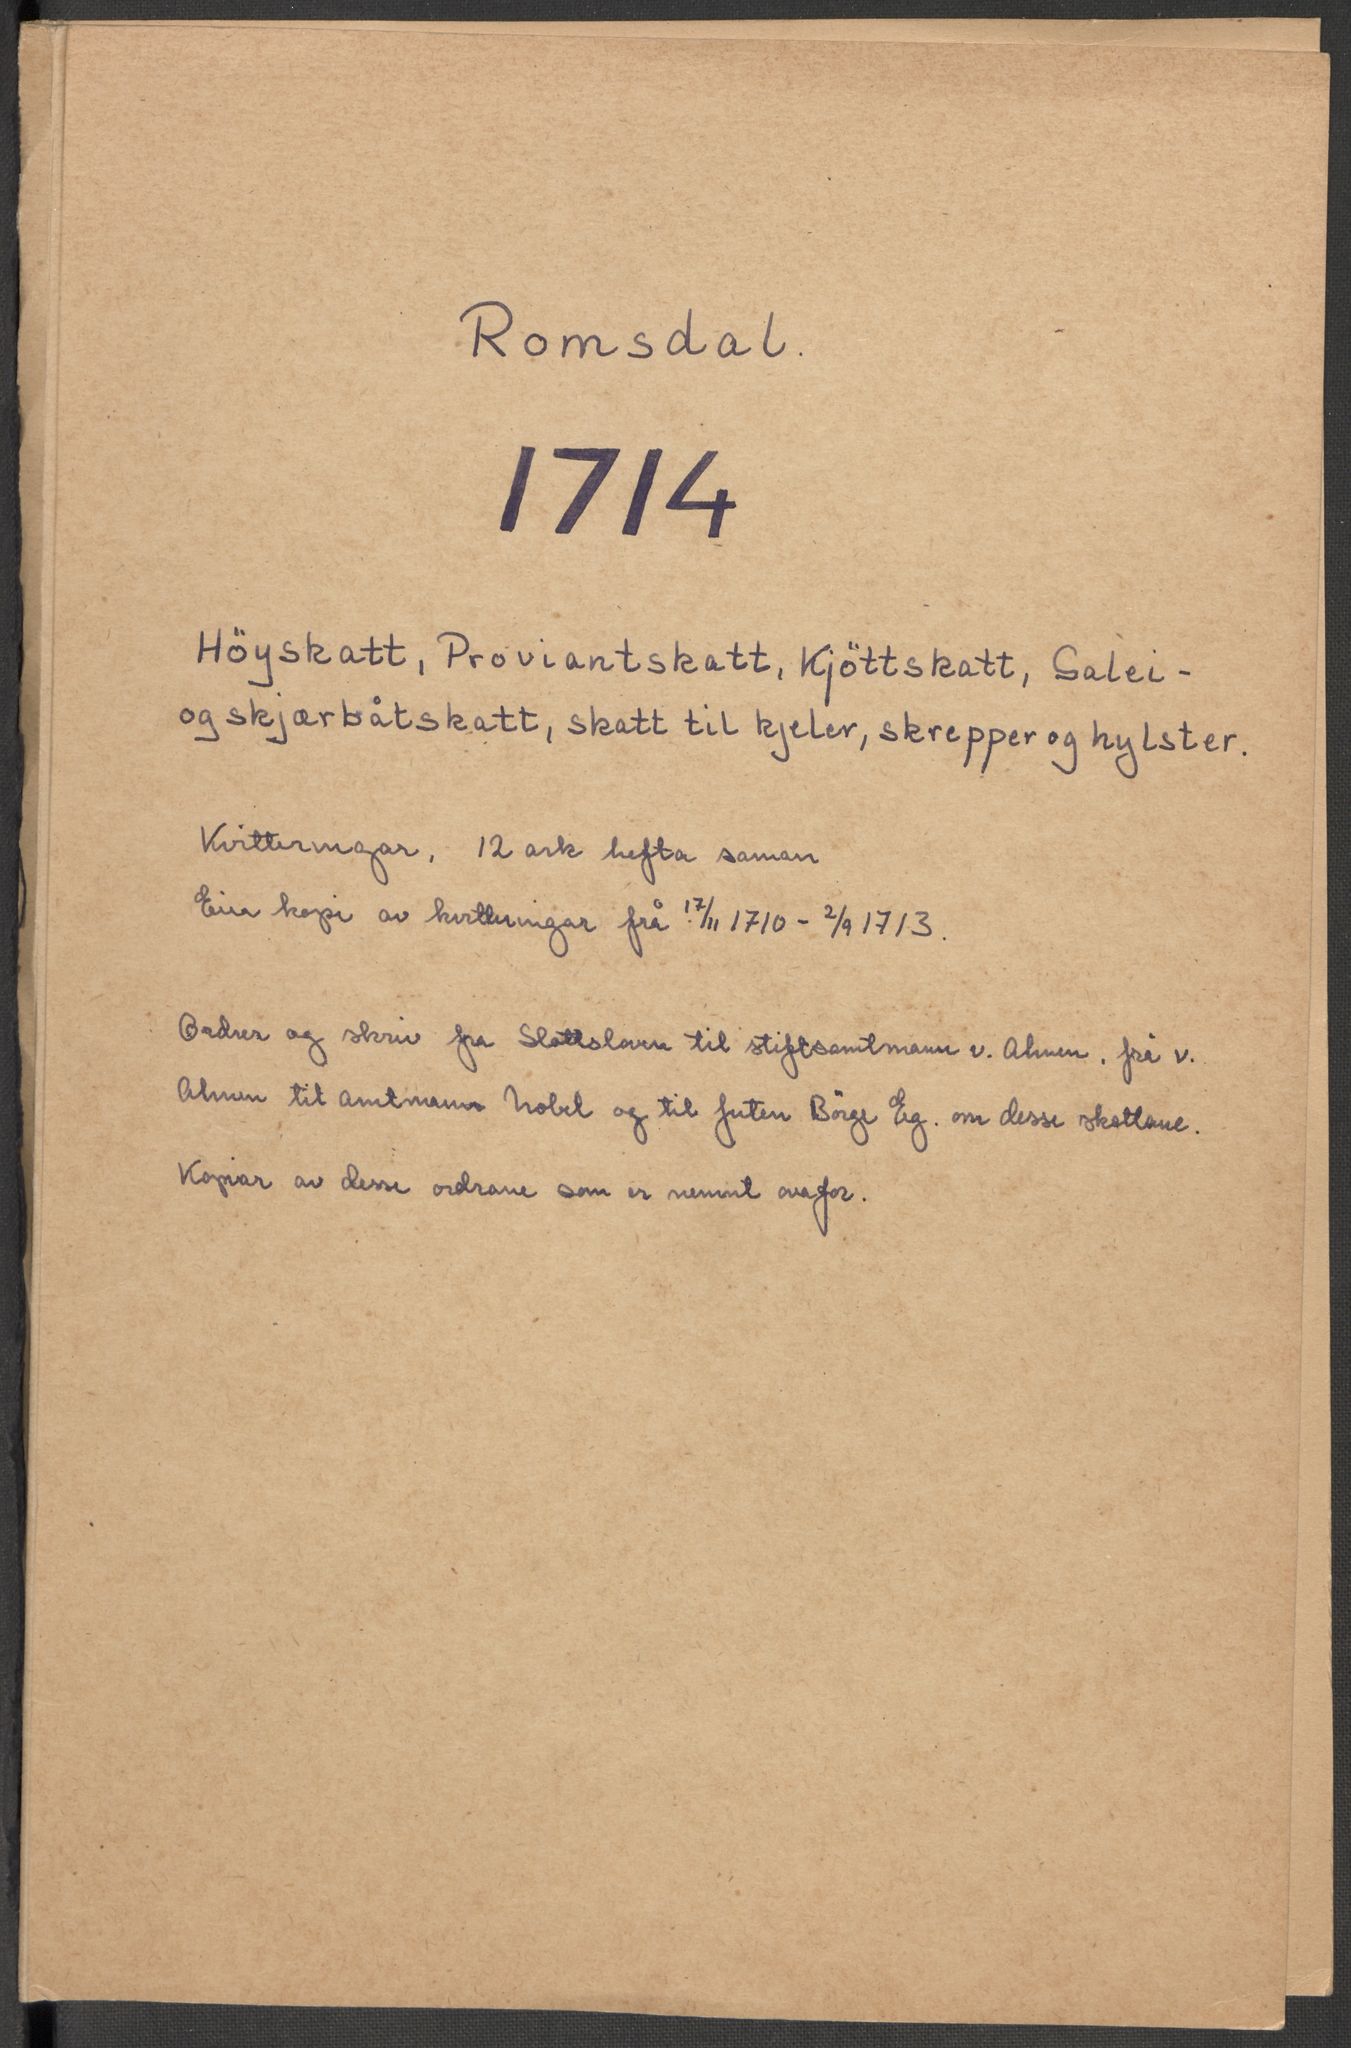 Romsdal.
1714
Höyskatt, Proviantskatt, Kjöttskatt, Galei-
og skjærbåtskatt, skatt til kjeler, skrepper og hylster.
Kvitteringar, 12 ark hefta saman
Ein kopi av kvitteringar frå 17/11 1710 - 2/9 1713.
Ordrer og skriv fra Slottsloven til stiftsamtmann v. Ahnen, frå v.
Ahnen til amtmann Nobel og til futen Börge Eg. om desse skattane.
Kopiar av desse ordrane som er nemnt ovafor.